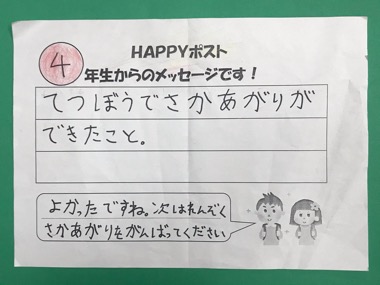 HAPPYポスト
4年生からのメッセージです！
てつぼうでさかあがりが
できたこと。
よかったですね。次はれんぞく
さかあがりをがんばってください